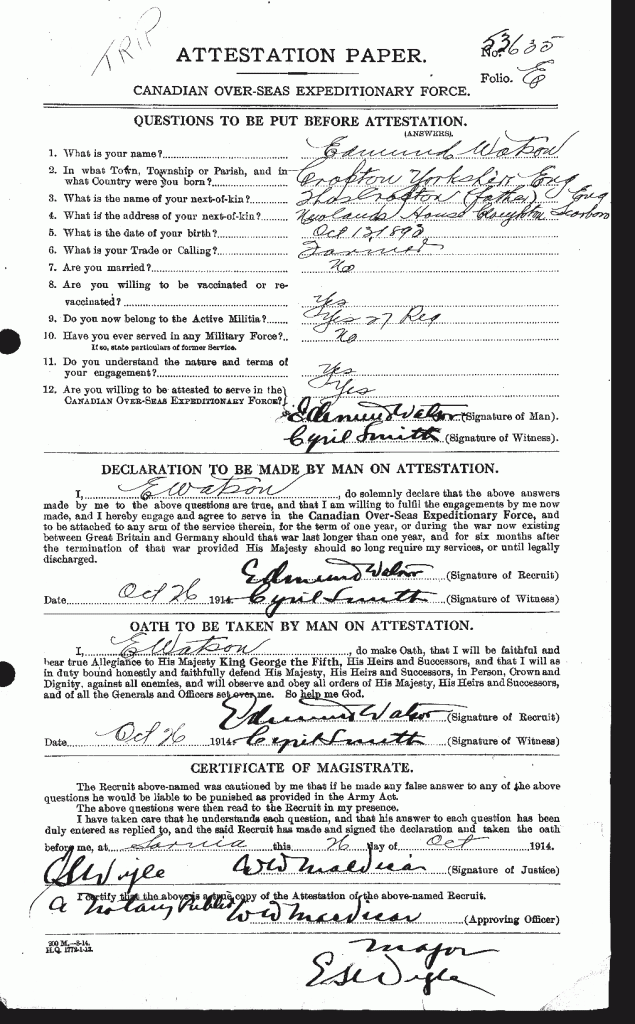 TRIP
ATTESTATION PAPER.
No. 53635
Folio. E
CANADIAN OVER-SEAS EXPEDITIONARY FORCE.
QUESTIONS TO BE PUT BEFORE ATTESTATION.
(ANSWERS).
1. What is your name? Edmund Watson
2. In what Town, Township or Parish, and in
what Country were you born? Crofton Yorkshire Eng
3. What is the name of your next-of-kin? Thos Crofton (father) Eng
4. What is the address of your next-of-kin? Newlands House Cloughton Scarboro
5. What is the date of your birth? Oct 13 1893
6. What is your Trade or Calling? Farmer
7. Are you married? No
8. Are you willing to be vaccinated or re-
vaccinated? Yes
9. Do you now belong to the Active Militia? Yes 27 Reg
10. Have you ever served in any Military Force? No
If so, state particulars of former Service.
11. Do you understand the nature and terms of
your engagement? Yes
12. Are you willing to be attested to serve in the
CANADIAN OVER-SEAS EXPEDITIONARY FORCE? Yes
Edmund Watson (Signature of Man).
Cyril Smith (Signature of Witness).
DECLARATION TO BE MADE BY MAN ON ATTESTATION.
I, E Watson, do solemnly declare that the above answers
made by me to the above questions are true, and that I am willing to fulfil the engagements by me now
made, and I hereby engage and agree to serve in the Canadian Over-Seas Expeditionary Force, and
to be attached to any arm of the service therein, for the term of one year, or during the war now existing
between Great Britain and Germany should that war last longer than one year, and for six months after
the termination of that war provided His Majesty should so long require my services, or until legally
discharged.
Edmund Watson (Signature of Recruit)
Date Oct 26 1914. Cyril Smith (Signature of Witness)
OATH TO BE TAKEN BY MAN ON ATTESTATION.
I, E Watson, do make Oath, that I will be faithful and
bear true Allegiance to His Majesty King George the Fifth, His Heirs and Successors, and that I will as
in duty bound honestly and faithfully defend His Majesty, His Heirs and Successors, in Person, Crown and
Dignity, against all enemies, and will observe and obey all orders of His Majesty, His Heirs and Successors,
and of all the Generals and Officers set over me. So help me God.
Edmund Watson (Signature of Recruit)
Date Oct 26 1914. Cyril Smith (Signature of Witness)
CERTIFICATE OF MAGISTRATE.
The Recruit above-named was cautioned by me that if he made any false answer to any of the above
questions he would be liable to be punished as provided in the Army Act.
The above questions were then read to the Recruit in my presence.
I have taken care that he understands each question, and that his answer to each question has been
duly entered as replied to, and the said Recruit has made and signed the declaration and taken the oath
before me, at Sarnia this 26 day of Oct 1914.
E S Wigle (Signature of Justice)
I certify that the above is a true copy of the Attestation of the above-named Recruit.
A Notary Public (Approving Officer)
200 M.—8-14.
H.Q. 1772-1-13.
Major
E S Wigle